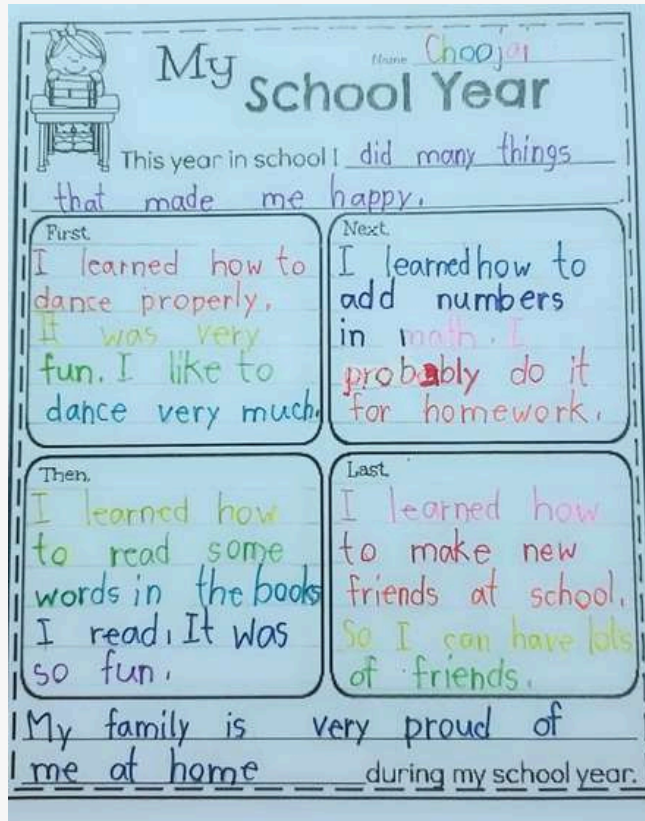 My
Name Choojai
School Year
This year in school I did many things
that made me happy.
First,
I learned how to
dance properly.
It was very
fun. I like to
dance very much.
Next,
I learned how to
add numbers
in math. I
probably do it
for homework.
Then,
I learned how
to read some
words in the books
I read. It was
so fun.
Last,
I learned how
to make new
friends at school.
So I can have lots
of friends.
My family is very proud of
me at home during my school year.